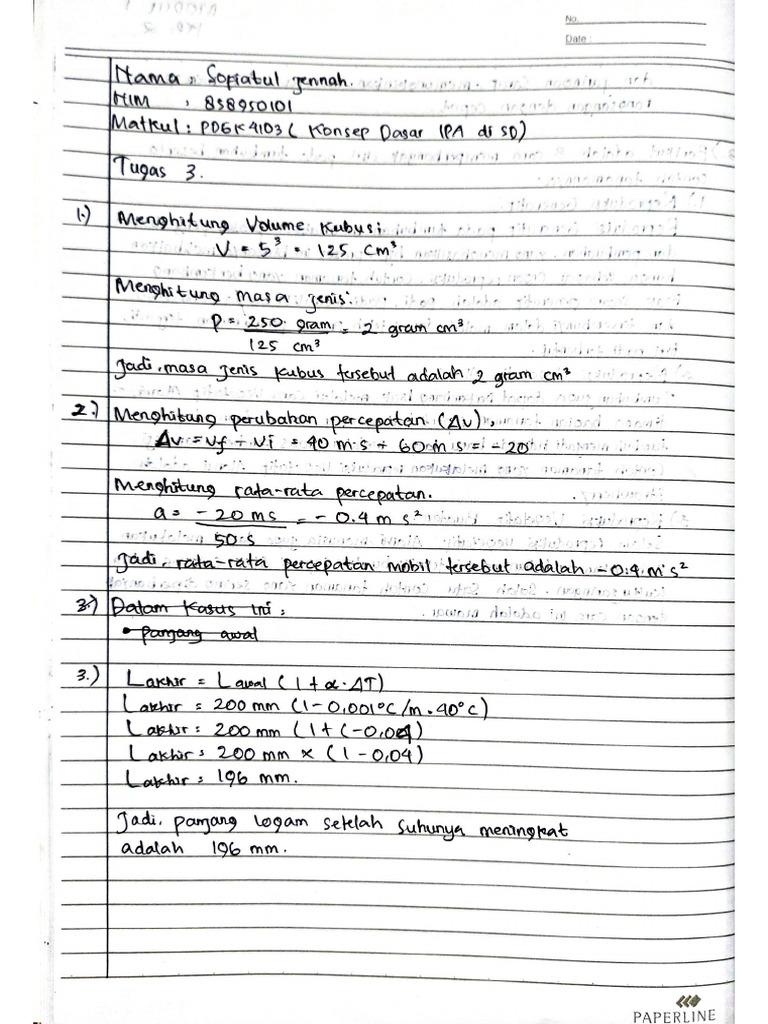 No.
Date :
Nama : Sopiatul Jennah.
NIM : 858950101
Matkul : PDGK4103 ( Konsep Dasar IPA di SD)
Tugas 3.
1.) Menghitung Volume Kubus:
V = 5³ = 125, cm³
Menghitung masa jenis:
P = 250 gram = 2 gram cm³
125 cm³
Jadi, masa jenis kubus tersebut adalah 2 gram cm³
2.) Menghitung perubahan percepatan (Δv),
Δv = vf - vi = 40 m·s - 60 m s = - 20
Menghitung rata-rata percepatan.
a = - 20 ms = - 0.4 m s²
50·s
Jadi, rata-rata percepatan mobil tersebut adalah -0.4 m·s²
3.) Dalam Kasus Ini :
• panjang awal
3.) Lakhir = Lawal ( 1 + α · ΔT)
Lakhir = 200 mm (1 - 0,001°C/m · 40°C)
Lakhir : 200 mm (1 + (-0,04)
Lakhir : 200 mm × ( 1 - 0,04)
Lakhir : 196 mm.
Jadi, panjang logam setelah suhunya meningkat
adalah 196 mm.
PAPERLINE